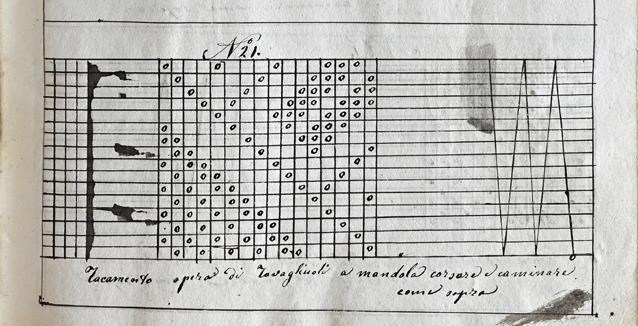 N.° 21.
Tacamento opera di Tovagliuoli a mandola corsore e caminare
come sopra